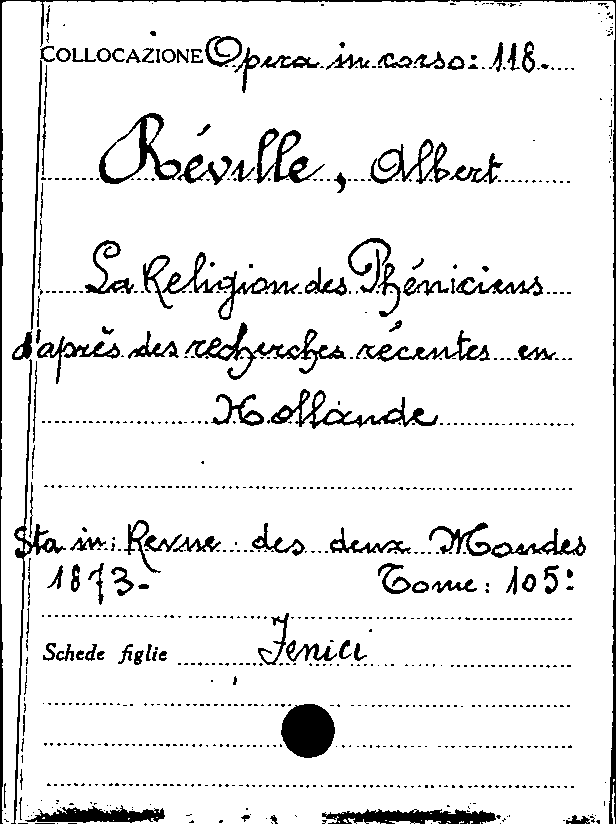 COLLOCAZIONE Opera in corso: 118.
Réville, Albert
La Religion des Phéniciens
d'après des recherches récentes en
Hollande
Sta in: Revue des deux Mondes
1873- Tome: 105:
Schede figlie Fenici